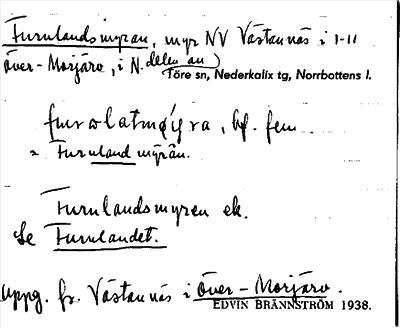 Furulandsmyran, myr NV Västannäs i 1-11
över-Morjärv, i N. delen av
Töre sn, Nederkalix tg, Norrbottens l.
bf. fem.
Furulandmyran.
Furulandsmyren ek.
Se Furulandet.
uppg. fr. Västannäs i över-Morjärv.
EDVIN BRÄNNSTRÖM 1938.